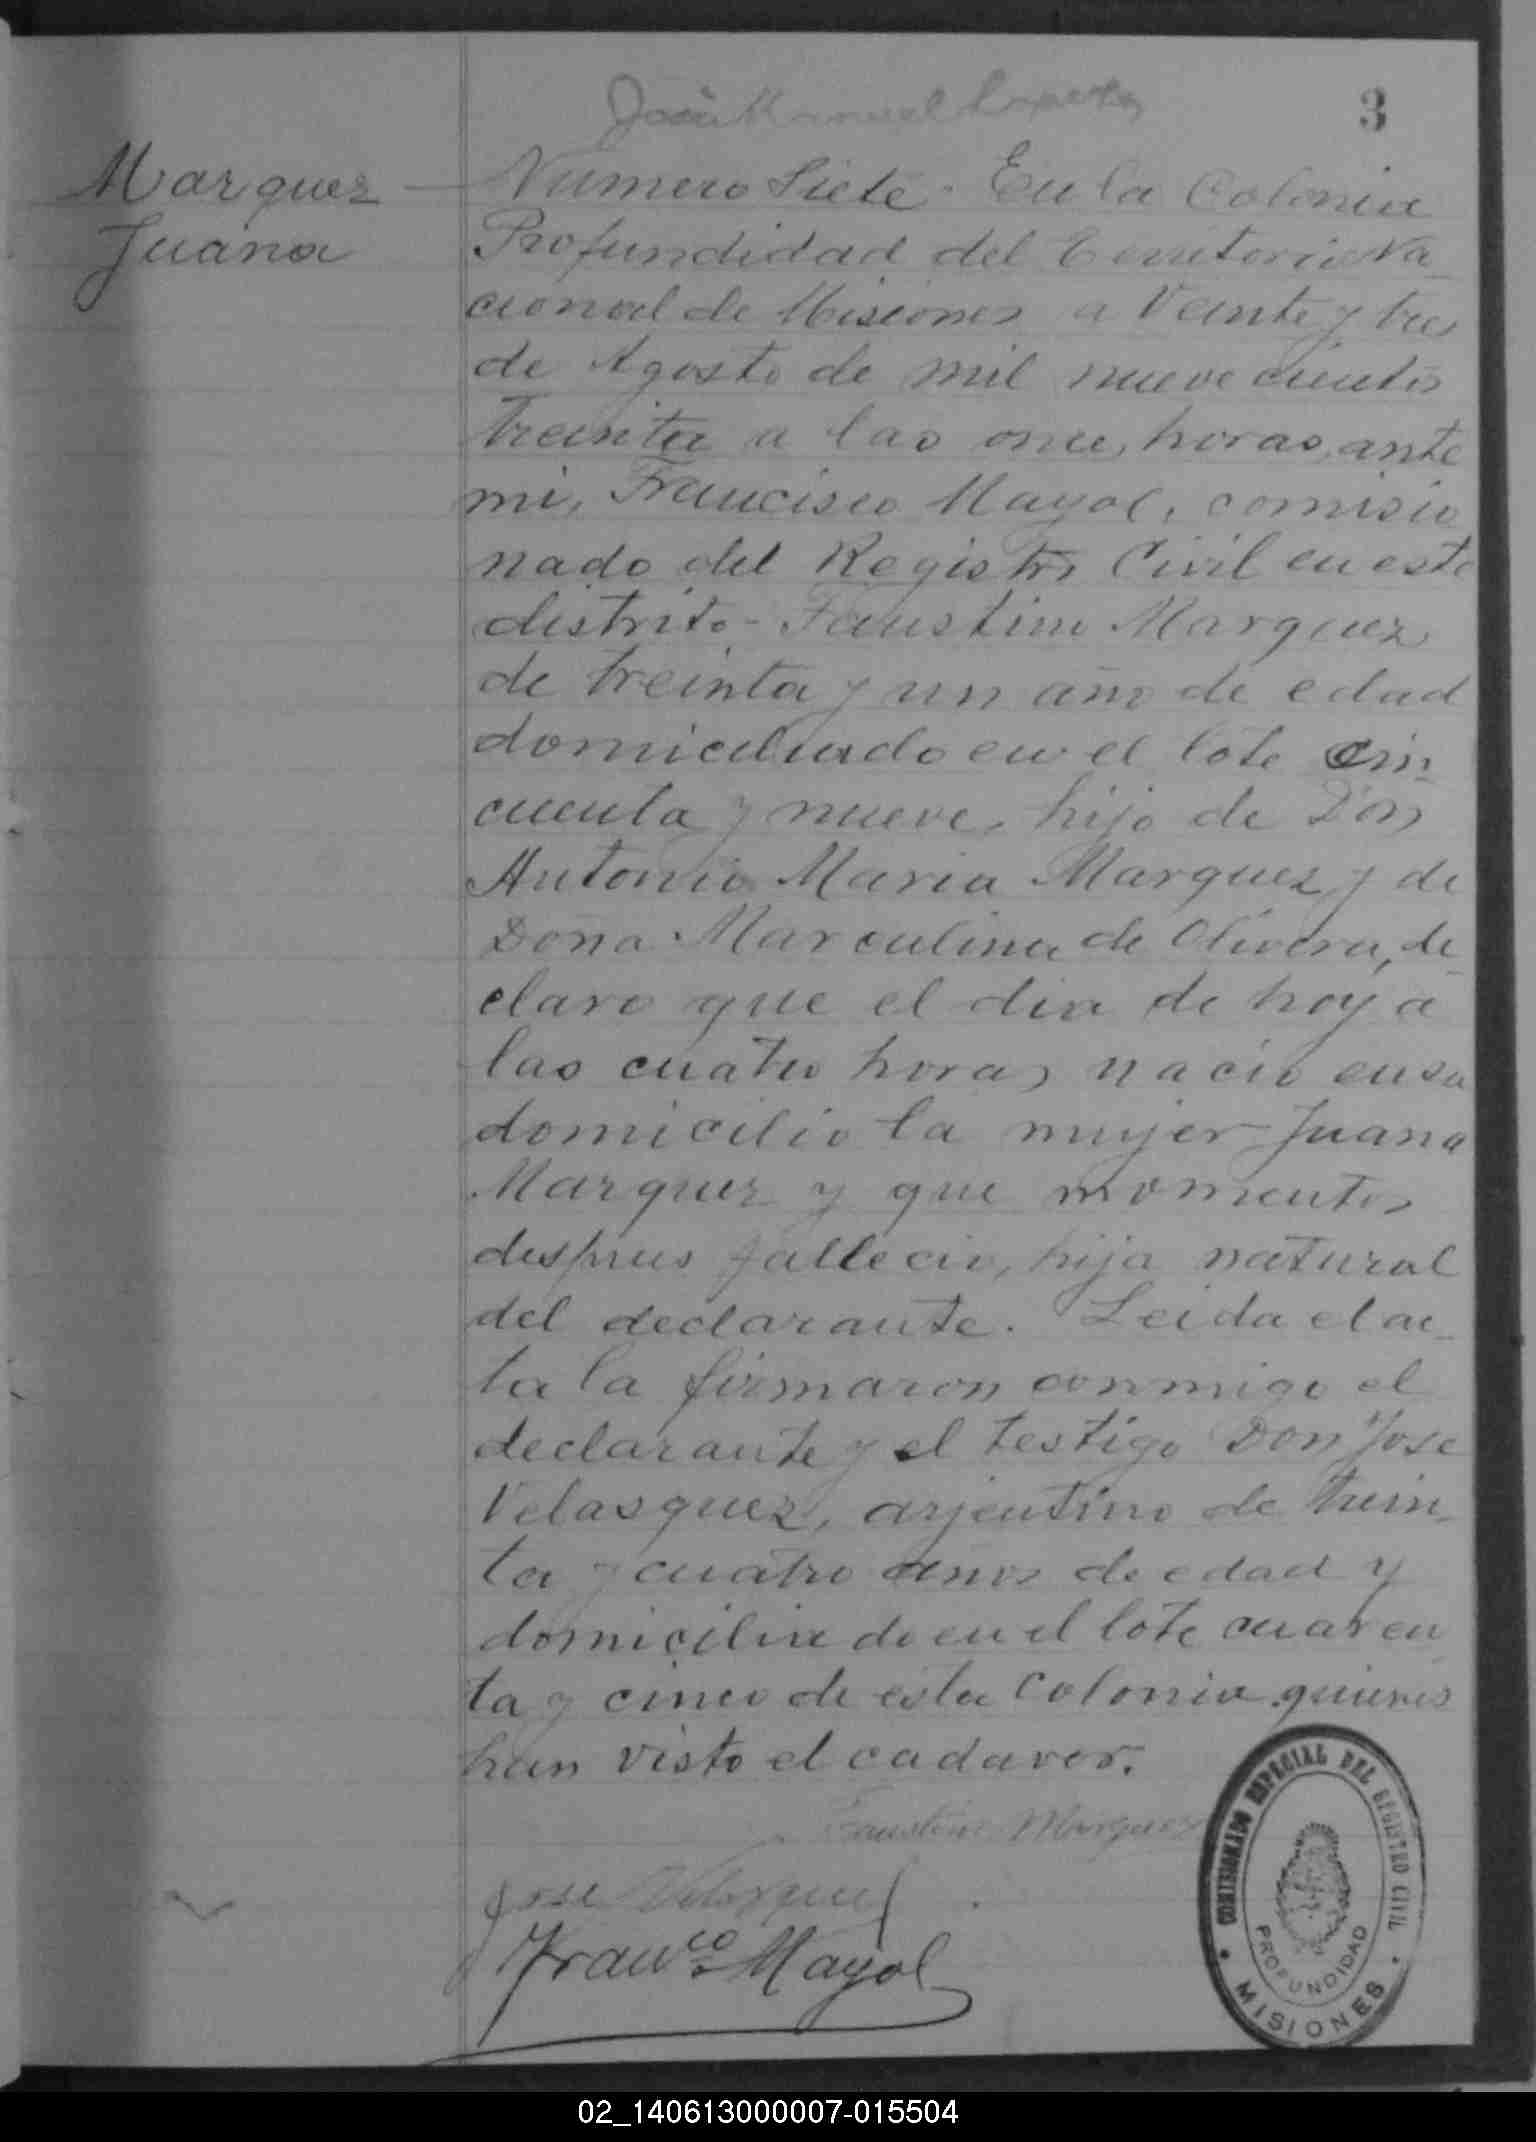 José Manuel
3
Marquez
Juana
Numero Siete. En la Colonia
Profundidad del Territorio Na-
cional de Misiones a Veinte y tres
de Agosto de mil nuevecientos
treinta a las once, horas, ante
mi, Francisco Mayol, comisio
nado del Registro Civil en este
distrito - Faustino Marquez
de treinta y un año de edad
domiciliado en el lote cin-
cuenta y nueve, hijo de Don
Antonio Maria Marquez y de
Doña Marculina de Olivera, de-
claro que el dia de hoy a
las cuatro horas nacio en su
domicilio la mujer Juana
Marquez y que momentos
despues fallecio, hija natural
del declarante. Leida el ac-
ta la firmaron conmigo el
declarante y el testigo Don Jose
Velasquez, arjentino de trein-
ta y cuatro años de edad y
domiciliado en el lote cuaren
ta y cinco de esta Colonia quienes
han visto el cadaver.
Faustino Marquez
Jose Velasquez
Franco. Mayol
COMISIONADO ESPECIAL DEL REGISTRO CIVIL
PROFUNDIDAD
MISIONES
02_140613000007-015504